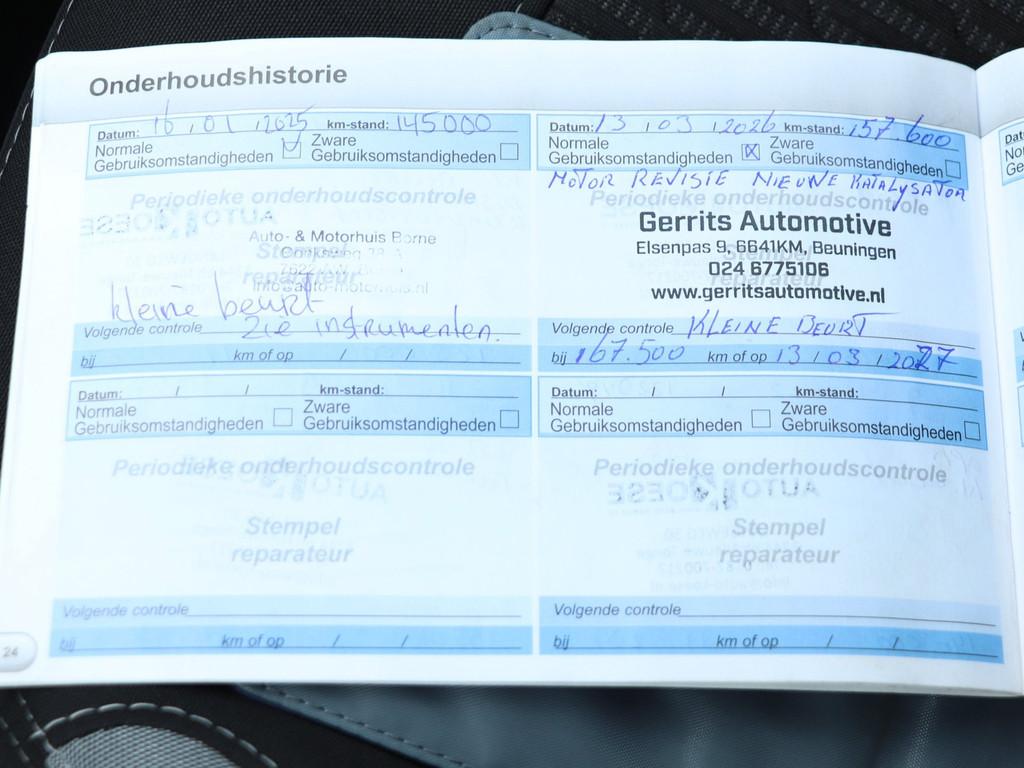 Onderhoudshistorie
Datum: 16 / 01 / 2025 km-stand: 145000
Normale Gebruiksomstandigheden Zware Gebruiksomstandigheden
Periodieke onderhoudscontrole
Auto- & Motorhuis Borne
Stempel
reparateur
kleine beurt
Volgende controle Zie instrumenten.
bij km of op / /
Datum: 13 / 03 / 2026 km-stand: 157.600
Normale Gebruiksomstandigheden Zware Gebruiksomstandigheden
MOTOR REVISIE NIEUWE KATALYSATOR
Periodieke onderhoudscontrole
Gerrits Automotive
Elsenpas 9, 6641KM, Beuningen
Stempel
024 6775106
reparateur
www.gerritsautomotive.nl
Volgende controle KLEINE BEURT
bij 167.500 km of op 13 / 03 / 2027
Datum: / / km-stand:
Normale Gebruiksomstandigheden Zware Gebruiksomstandigheden
Periodieke onderhoudscontrole
Stempel
reparateur
Volgende controle
bij km of op / /
Datum: / / km-stand:
Normale Gebruiksomstandigheden Zware Gebruiksomstandigheden
Periodieke onderhoudscontrole
Stempel
reparateur
Volgende controle
bij km of op / /
24